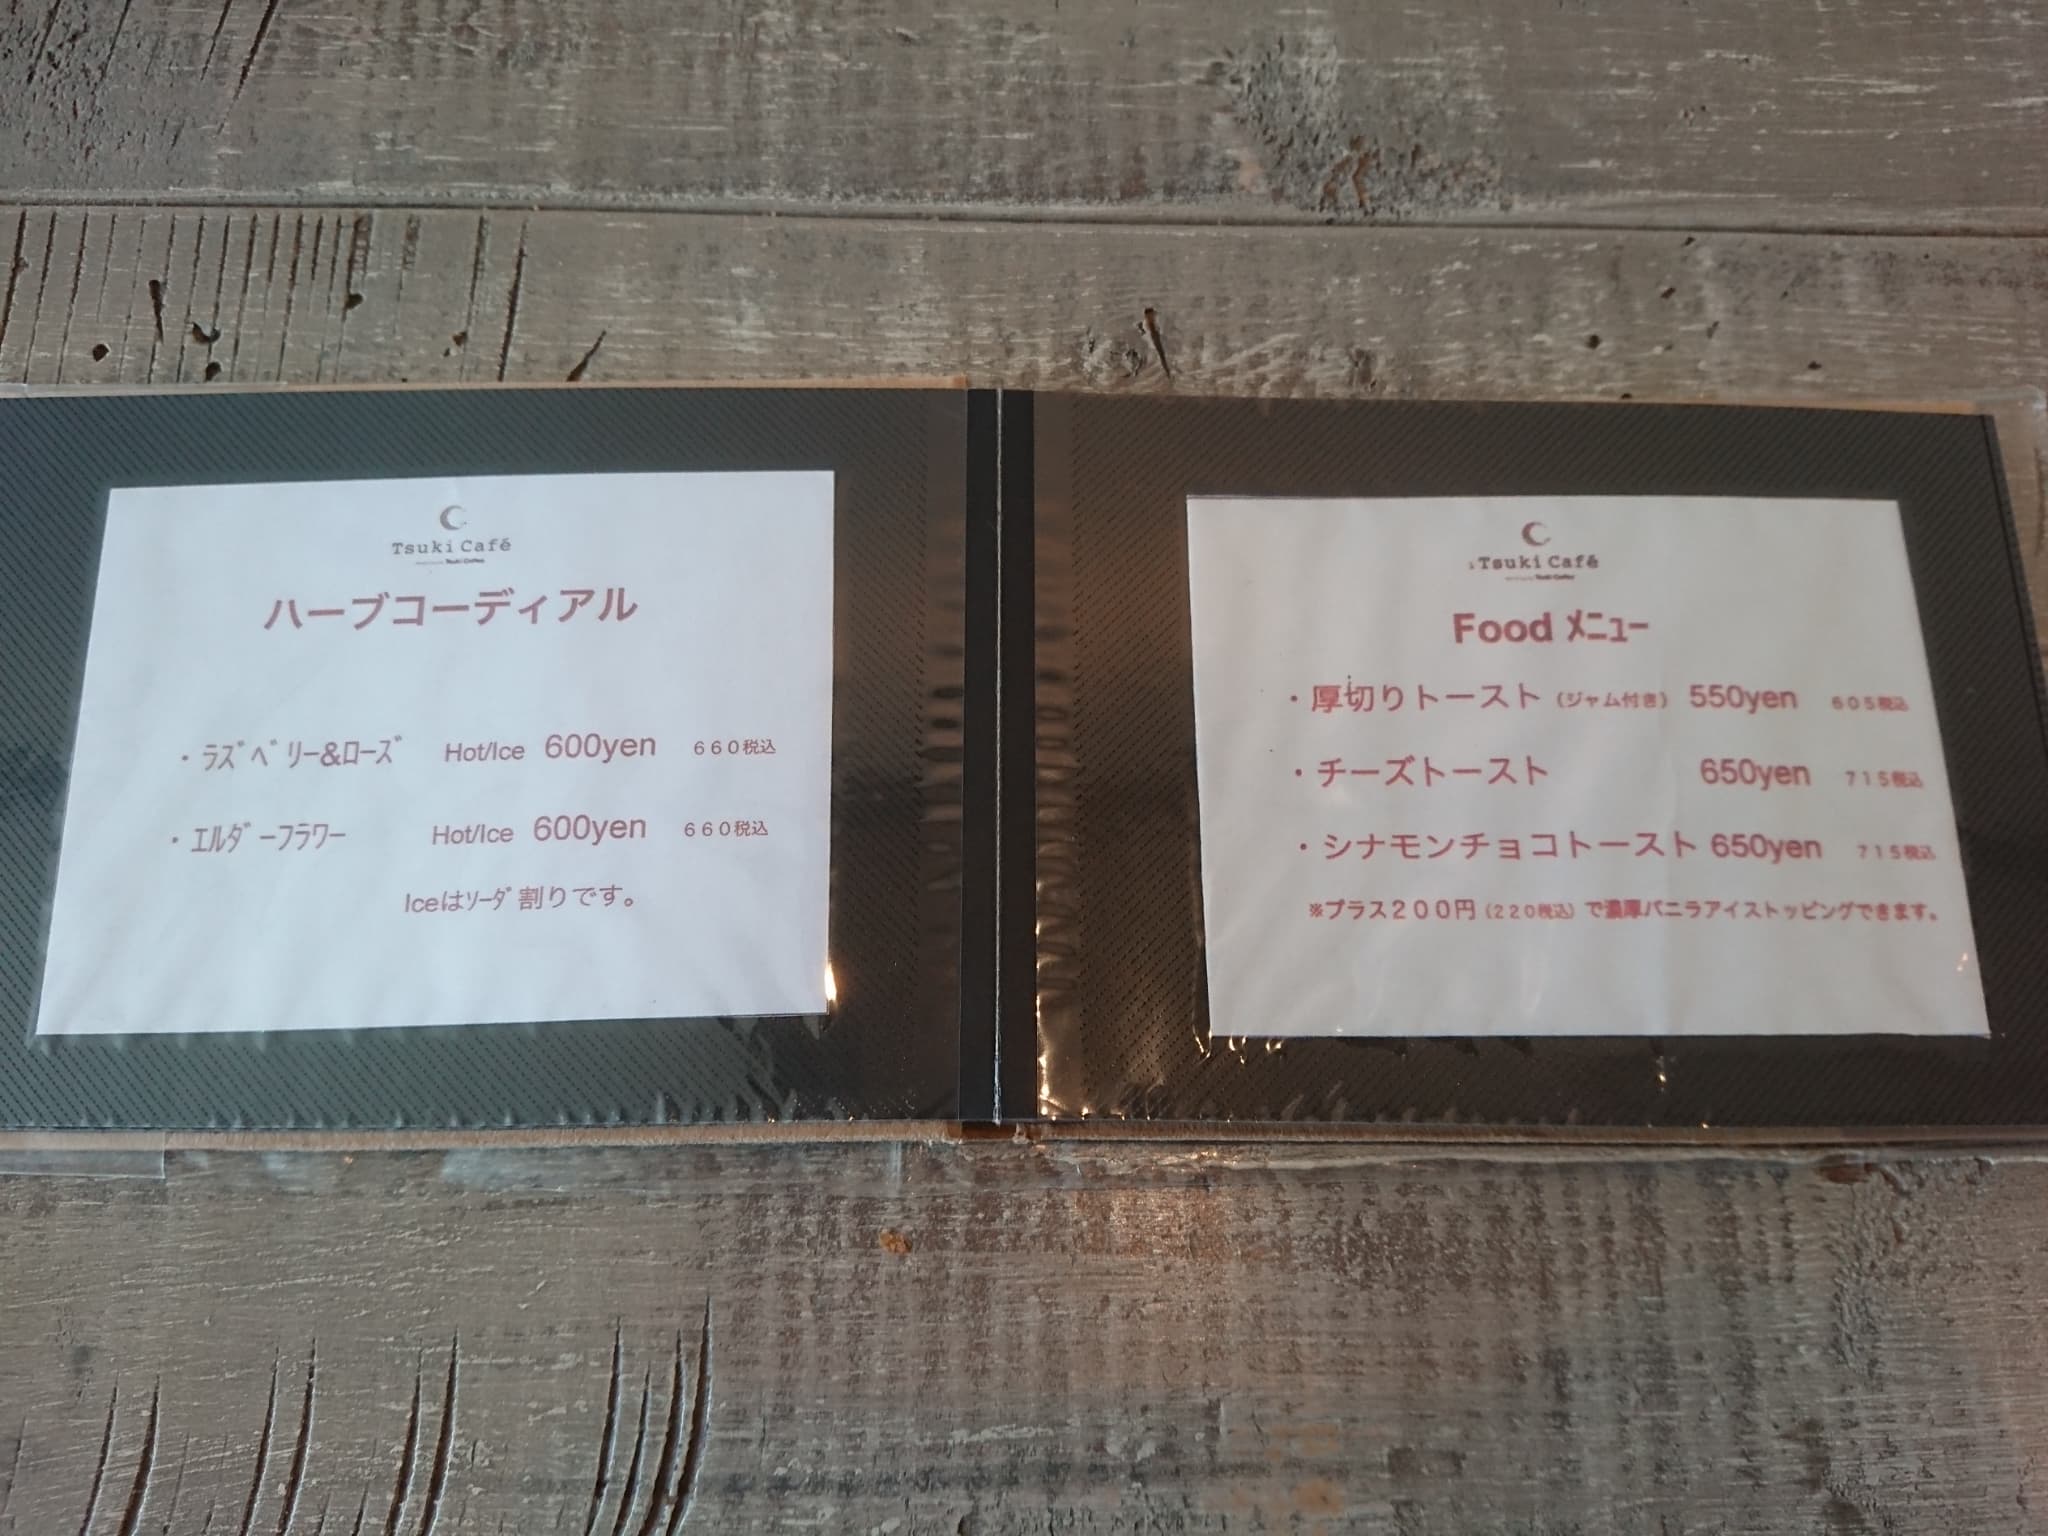 Tsuki Café
Tsuki Coffee
ハーブコーディアル
・ﾗｽﾞﾍﾞﾘｰ&ﾛｰｽﾞ Hot/Ice 600yen 660税込
・ｴﾙﾀﾞｰﾌﾗﾜｰ Hot/Ice 600yen 660税込
Iceはｿｰﾀﾞ割りです。
Tsuki Café
Tsuki Coffee
Food ﾒﾆｭｰ
・厚切りトースト（ジャム付き） 550yen 605税込
・チーズトースト 650yen 715税込
・シナモンチョコトースト 650yen 715税込
※プラス200円（220税込）で濃厚バニラアイストッピングできます。